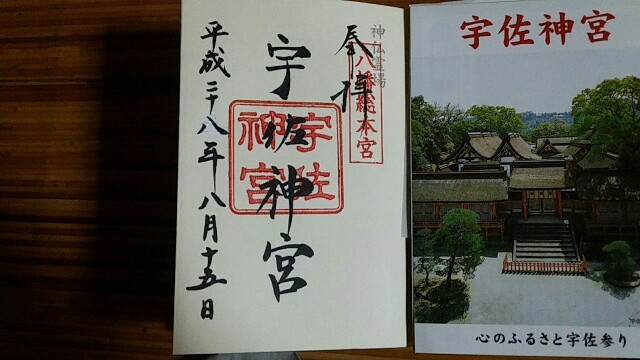 神仏霊場
八幡総本宮
奉拝
宇佐神宮
宇佐
神宮
平成二十八年八月十五日
宇佐神宮
心のふるさと宇佐参り